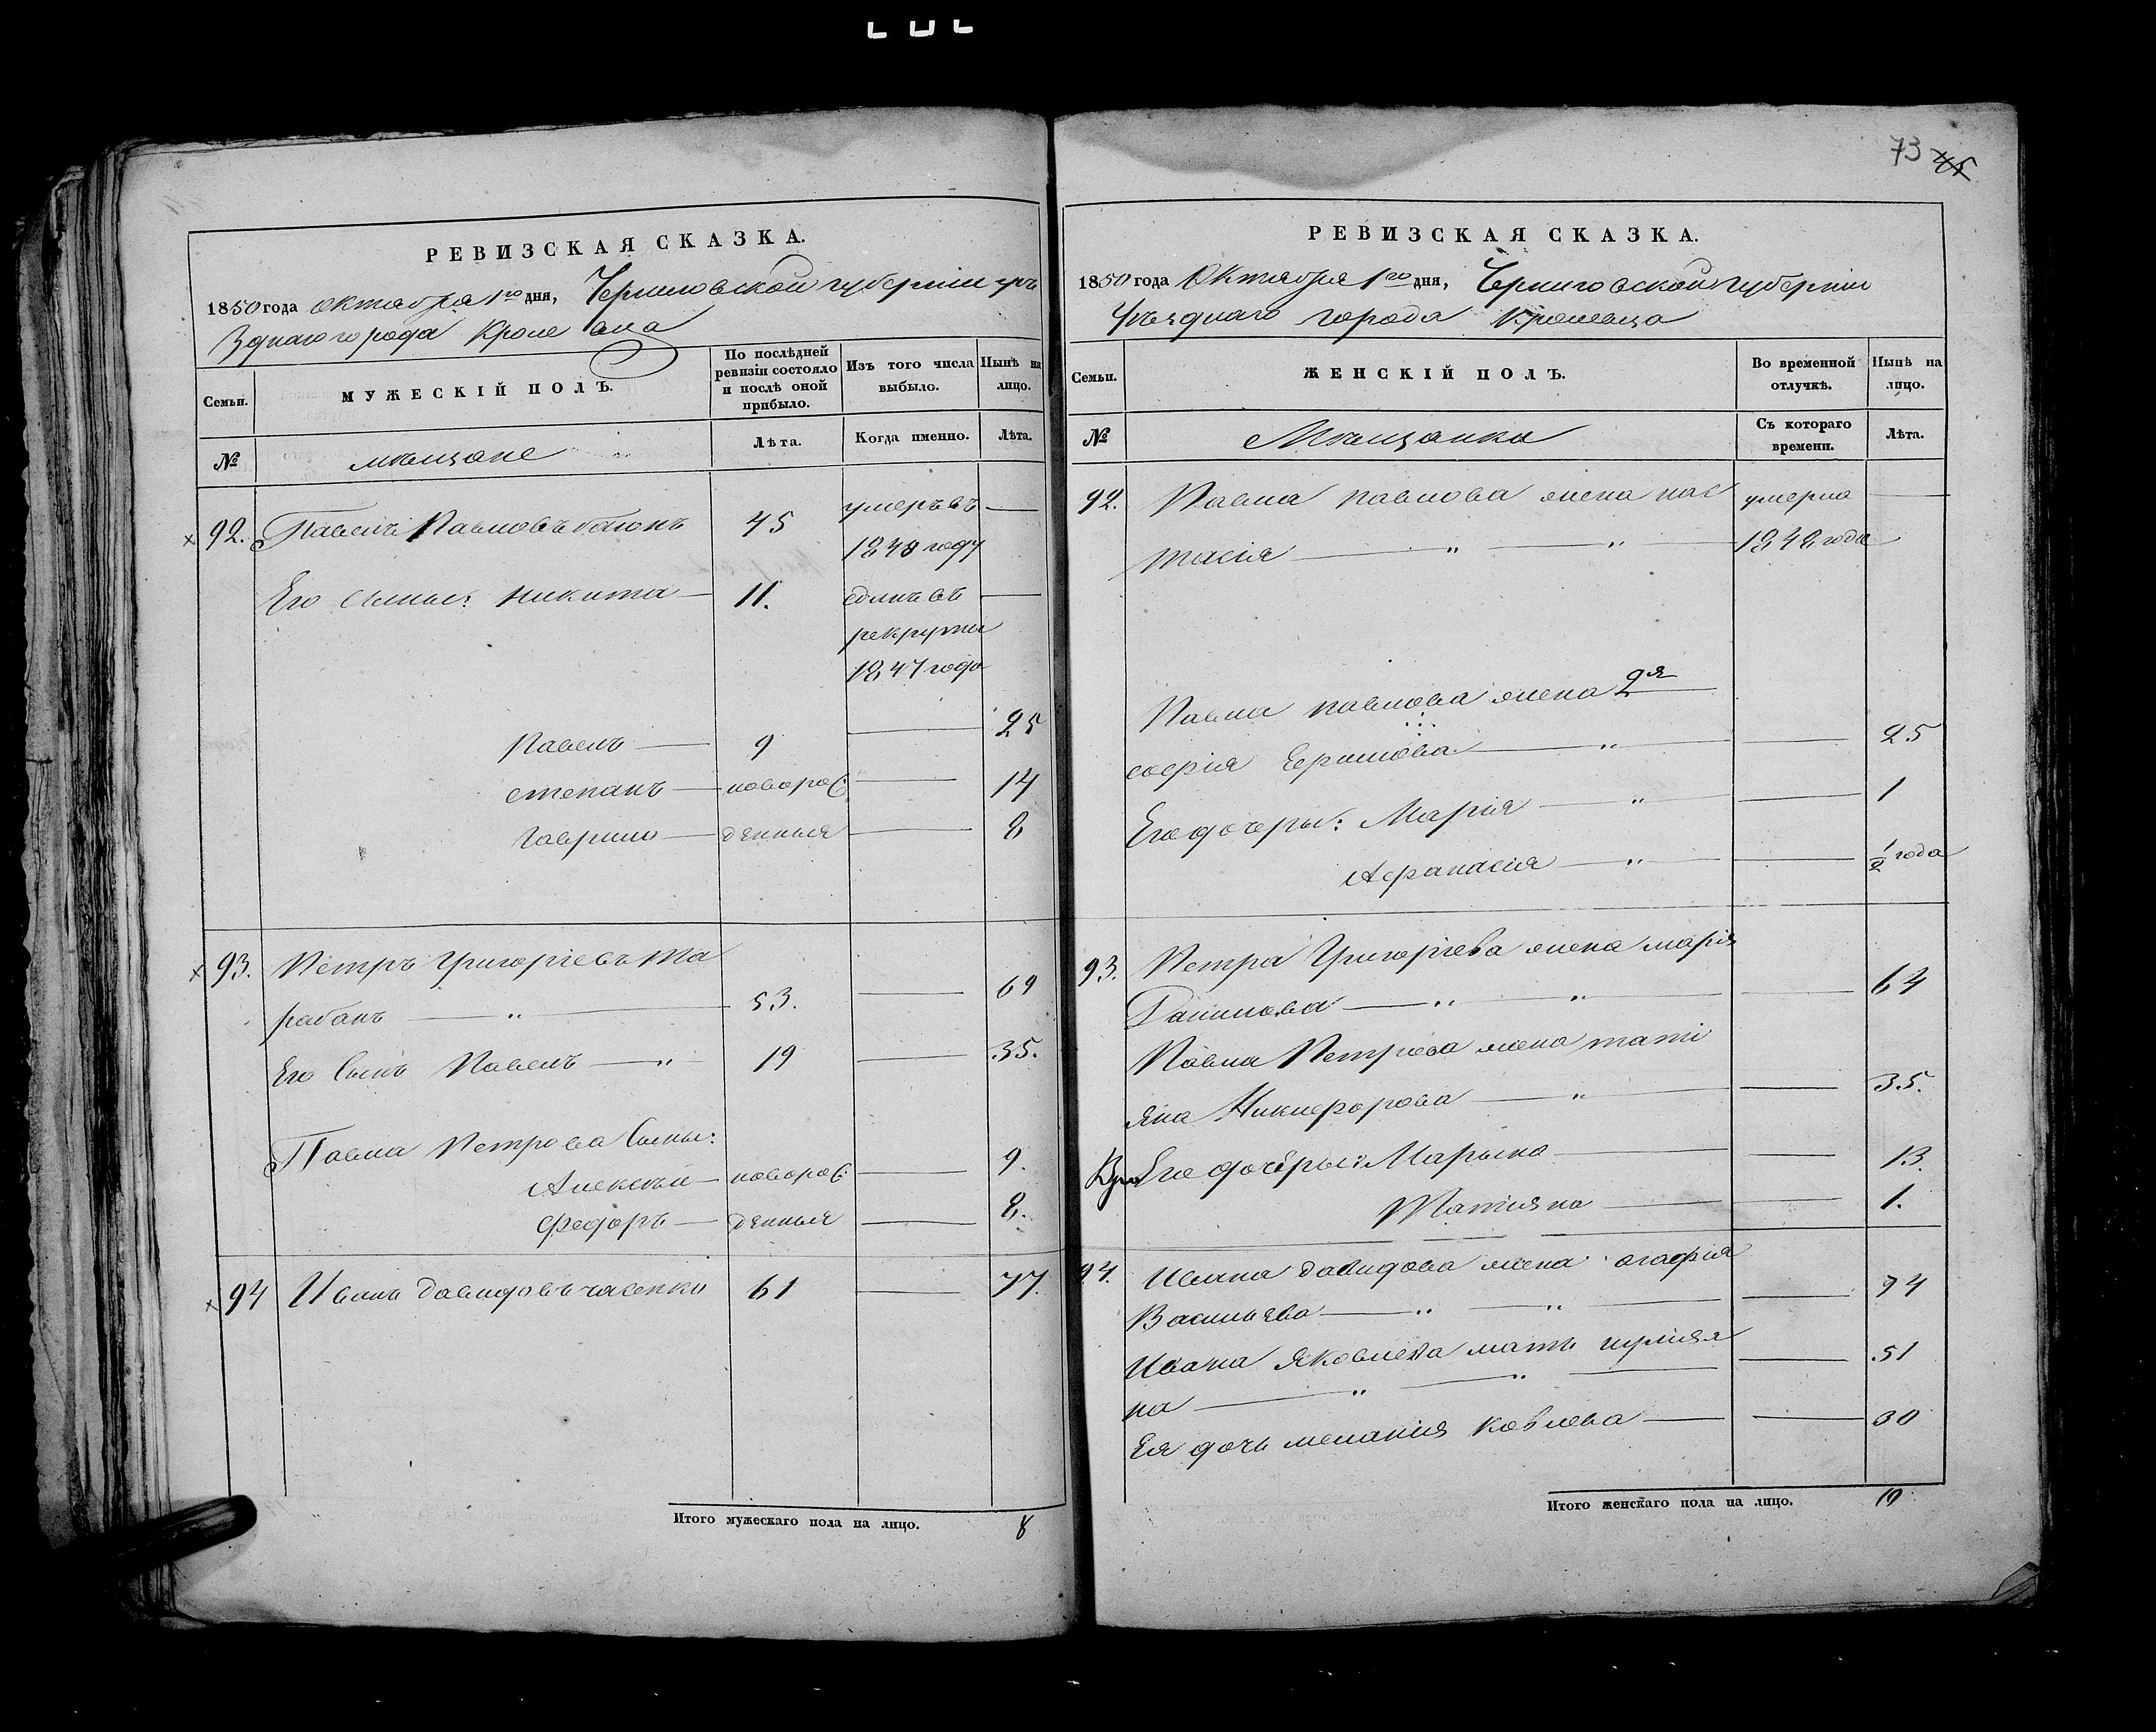 73 45
РЕВИЗСКАЯ СКАЗКА.
1850 года Октября 1го дня, Черниговской губернии уѣ
зднаго города Кролевца
Семьи.
МУЖЕСКІЙ ПОЛЪ.
По послѣдней ревизіи состояло и послѣ оной прибыло.
Изъ того числа выбыло.
Нынѣ на лицо.
№
мѣщане
Лѣта.
Когда именно.
Лѣта.
92. Павелъ Павловъ 45 умеръ въ —
1849 году
Его сыны: Никита — 11. сданъ въ —
рекруты
1847 года
Павелъ — 9 — 25
Степанъ — новорож — 14
Гаврило — денныя — 8
93. Петръ Григоріевъ Та
рабанъ — " — 53. — 69
Его Сынъ Павелъ — " 19 — 35.
Павла Петрова Сыны:
Алексѣй — новорож — 9.
Федоръ — денныя — 8.
94 Иванъ Давидовъ 61 — 77.
Итого мужескаго пола на лицо. 8
РЕВИЗСКАЯ СКАЗКА.
1850 года Октября 1го дня, Черниговской губерніи
Уѣзднаго города Кролевца
Семьи.
ЖЕНСКІЙ ПОЛЪ.
Во временной отлучкѣ.
Нынѣ на лицо.
№
Мѣщанки
Съ котораго времени.
Лѣта.
92. Павла Павлова жена Нас умерла —
тасія — " — " — 1848 года
Павла Павлова жена 2я
софія — " — 25
Его дочеры: Марія — " — 1
Афанасія — " — 1/2 года
93. Петра Григоріева жена Марія
Данилова — " — " — 64
Павла Петрова жена тати
яна Никифорова — " — 35.
Его дочеры: Марына — 13.
Татияна — 1.
94. Ивана Давидова жена агафія
Васильева — " — " — 74
Ивана Яковлева мать
на — " — " — 51
Ея дочь мелания — 30
Итого женскаго пола на лицо. 10